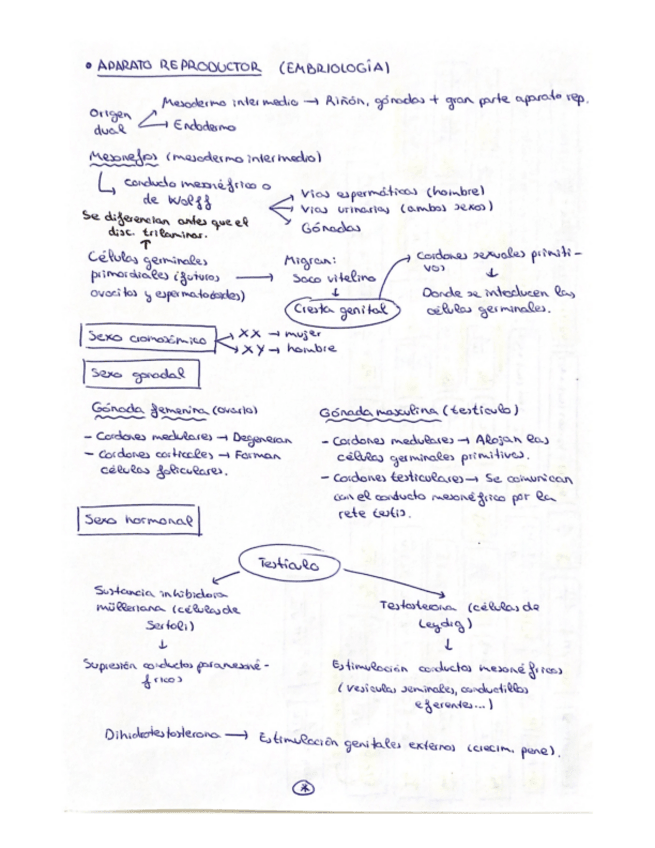 • APARATO REPRODUCTOR (EMBRIOLOGÍA)
Mesodermo intermedio → Riñón, gónadas + gran parte aparato rep.
Origen dual
→ Endodermo
Mesonefos (mesodermo intermedio)
conducto mesonéfrico o
de Wolff
Vías espermáticas (hombre)
Vías urinarias (ambos sexos)
Gónadas
Se diferencian antes que el
disc. trilaminar.
↑
Células germinales
primordiales (futuros
ovocitos y espermatozoides)
→
Migran:
Saco vitelino
↓
Cresta genital
Cordones sexuales primiti-
vos
↓
Donde se introducen las
células germinales.
Sexo cromosómico
XX → mujer
XY → hombre
Sexo gonadal
Gónada femenina (ovario)
- Cordones medulares → Degeneran
- Cordones corticales → Forman
células foliculares.
Gónada masculina (testículo)
- Cordones medulares → Alojan las
células germinales primitivas.
- Cordones testiculares → Se comunican
con el conducto mesonéfrico por la
rete testis.
Sexo hormonal
Testículo
Sustancia inhibidora
mülleriana (células de
Sertoli)
↓
Supresión conductos paramesoné-
fricos
Testosterona (células de
Leydig)
↓
Estimulación conductos mesonéfricos
(vesículas seminales, conductillos
eferentes...)
Dihidrotestosterona → Estimulación genitales externos (crecim. pene).
*